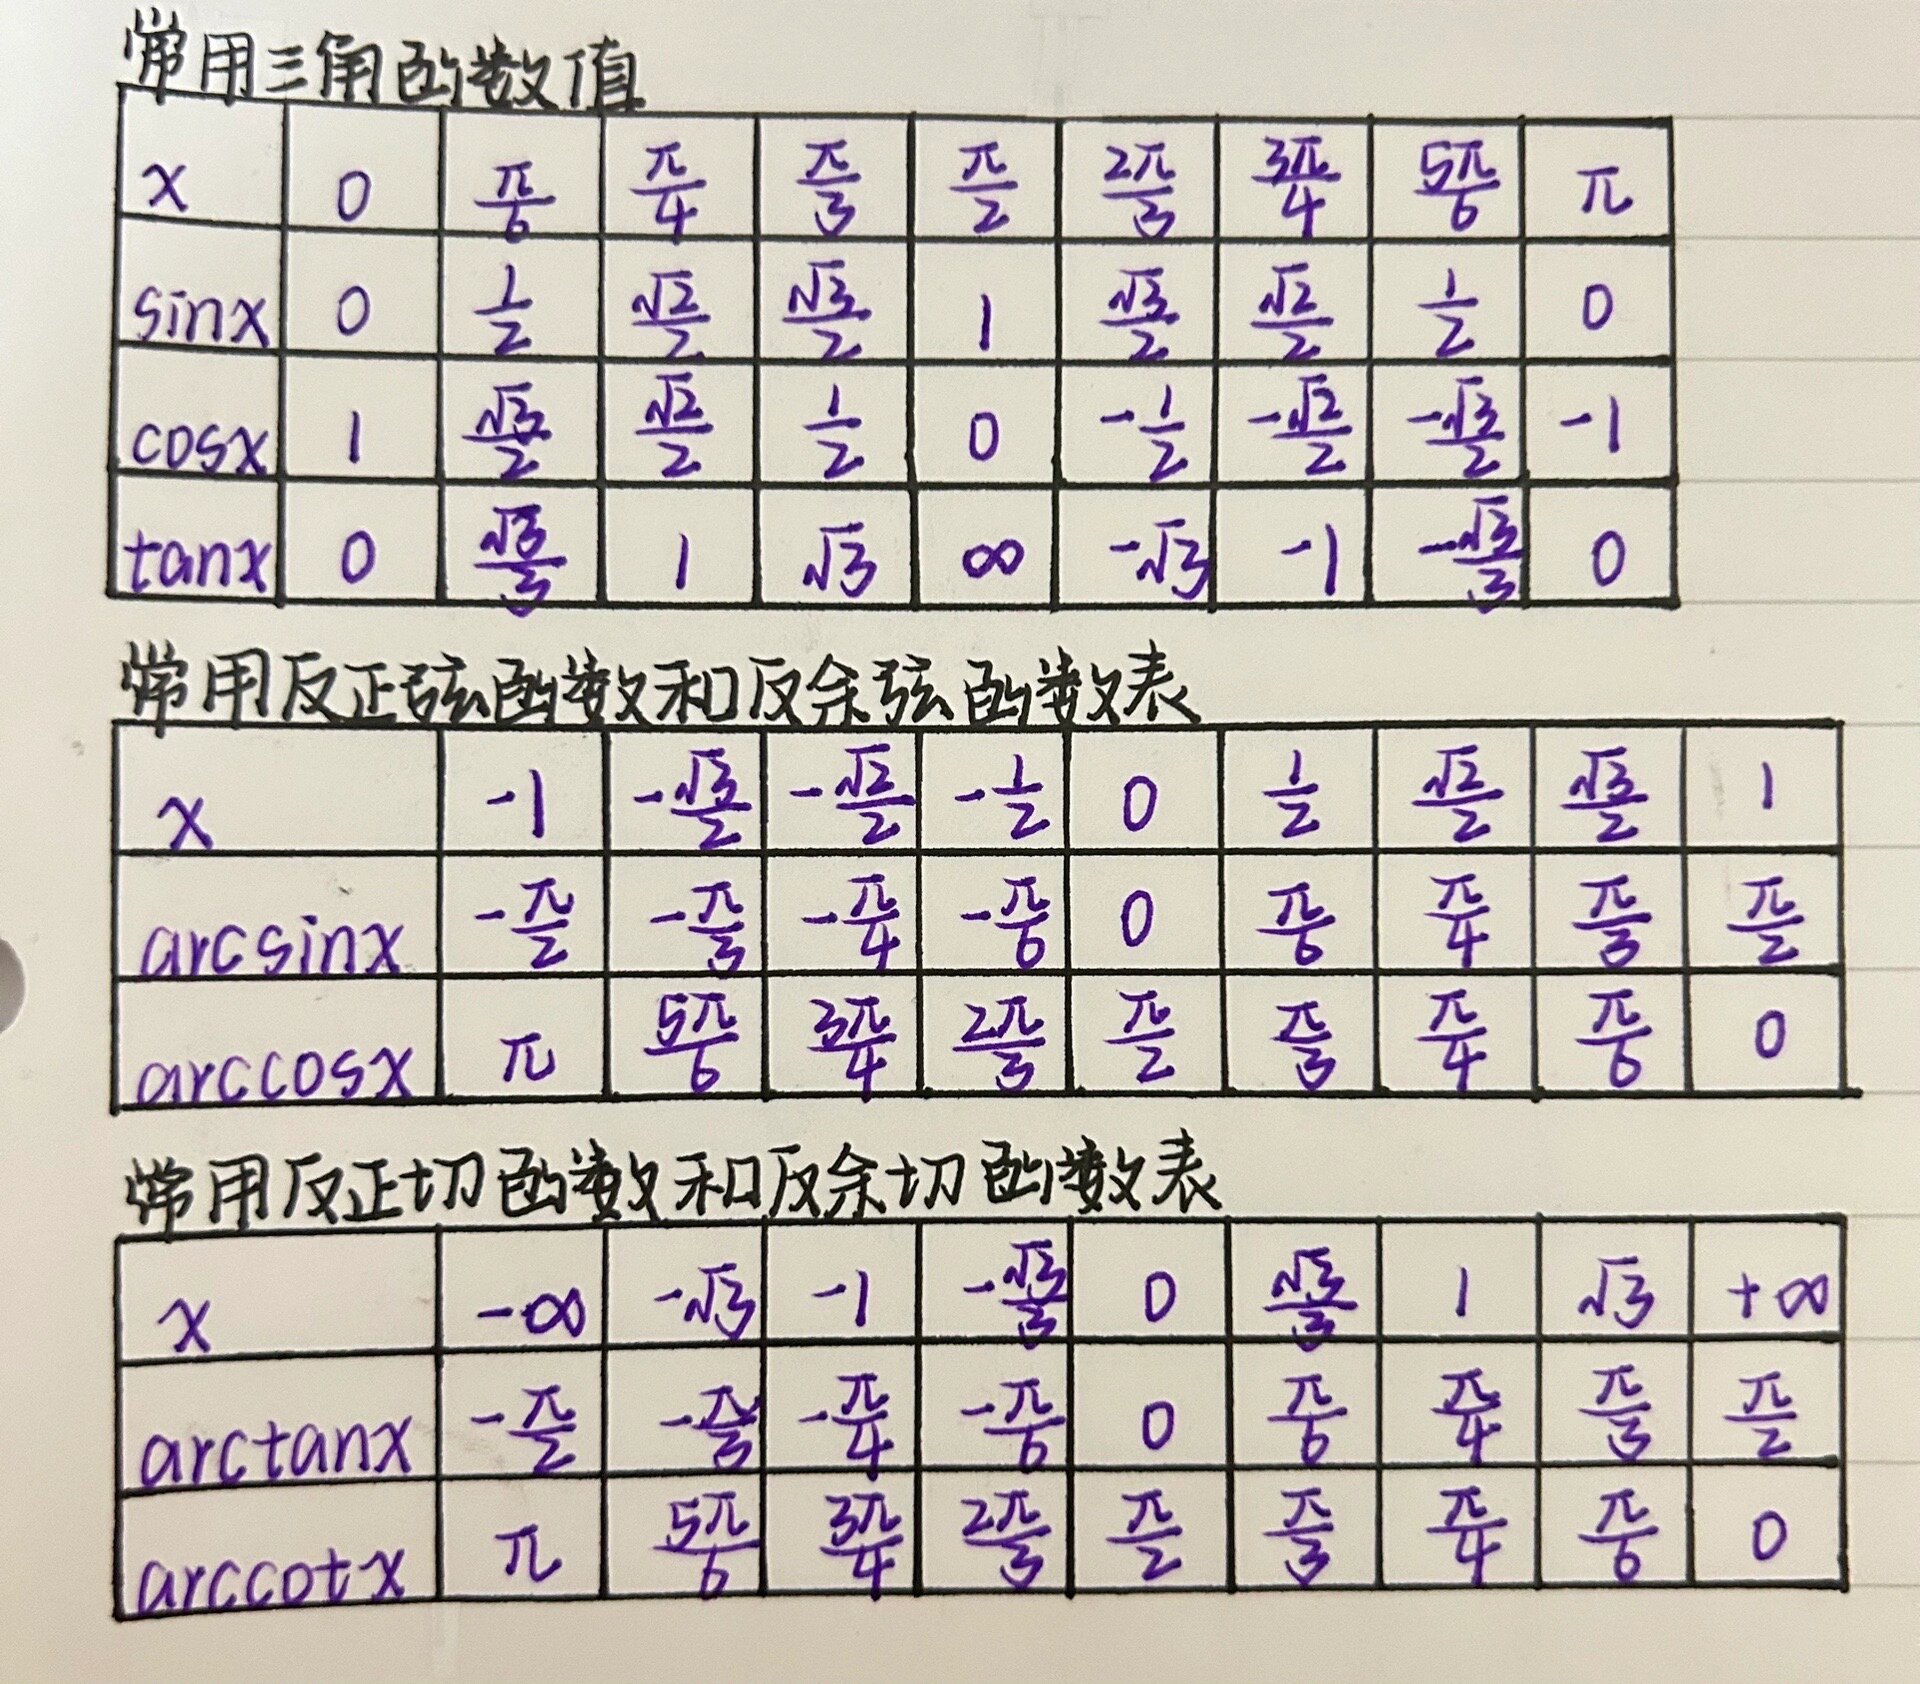 常用三角函数值
x 0 π/6 π/4 π/3 π/2 2π/3 3π/4 5π/6 π
sinx 0 1/2 √2/2 √3/2 1 √3/2 √2/2 1/2 0
cosx 1 √3/2 √2/2 1/2 0 -1/2 -√2/2 -√3/2 -1
tanx 0 √3/3 1 √3 ∞ -√3 -1 -√3/3 0
常用反正弦函数和反余弦函数表
x -1 -√3/2 -√2/2 -1/2 0 1/2 √2/2 √3/2 1
arcsinx -π/2 -π/3 -π/4 -π/6 0 π/6 π/4 π/3 π/2
arccosx π 5π/6 3π/4 2π/3 π/2 π/3 π/4 π/6 0
常用反正切函数和反余切函数表
x -∞ -√3 -1 -√3/3 0 √3/3 1 √3 +∞
arctanx -π/2 -π/3 -π/4 -π/6 0 π/6 π/4 π/3 π/2
arccotx π 5π/6 3π/4 2π/3 π/2 π/3 π/4 π/6 0